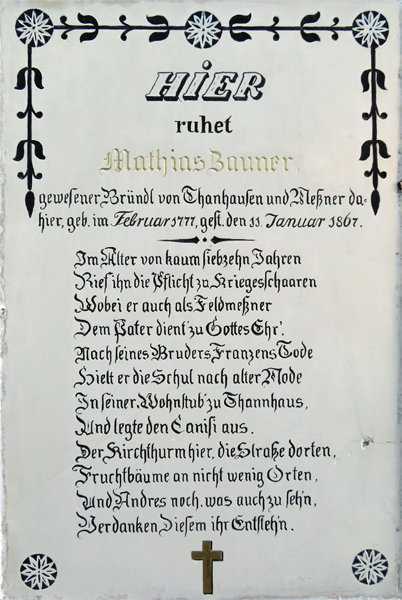 HiER
ruhet
Mathias Zauner
gewesener Bründl von Thanhausen und Meßner da-
hier, geb. im Februar 1777, gest. den 11. Januar 1867.
Im Alter von kaum siebzehn Jahren
Rief ihn die Pflicht zu Kriegesschaaren
Wobei er auch als Feldmeßner
Dem Pater dient' zu Gottes Ehr'.
Nach seines Bruders Franzens Tode
Hielt er die Schul nach alter Mode
In seiner Wohnstub' zu Thannhaus,
Und legte den Canisi aus.
Der Kirchthurm hier, die Straße dorten,
Fruchtbäume an nicht wenig Orten,
Und Andres noch, was auch zu seh'n,
Verdanken Diesem ihr Entsteh'n.